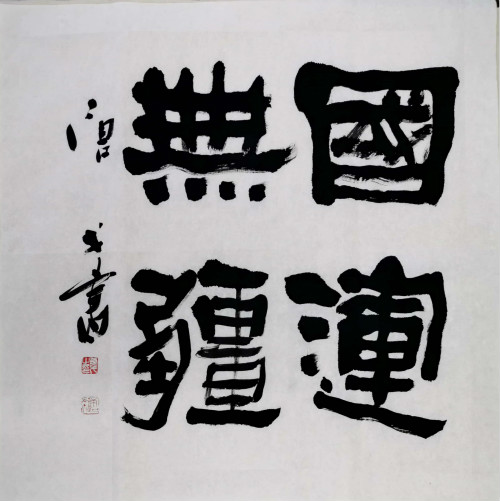 國運
無疆
書